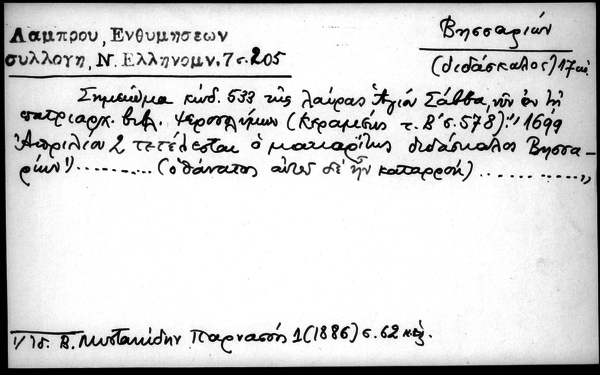 Λαμπρου, Ενθυμησεων
συλλογη, Ν. Ελληνομν. 7 σ. 205
Βησσαριών
(διδάσκαλος) 17 αι.
Σημείωμα κώδ. 533 τῆς λαύρας Ἁγίου Σάββα, νῦν ἐν τῇ
πατριαρχ. βιβλ. Ἱεροσολύμων (Κεραμεὺς τ. Β΄ σ. 578): "1699
Ἀπριλίου 2 τετέλεσται ὁ μακαρίτης διδάσκαλος Βησσα-
ρίων 1) ........... (ὁ θάνατος αὐτοῦ δὲ ἦν καταρροή) ............."
1/ Ἴδ. Β. Μυστακίδην Παρνασσός 1 (1886) σ. 62 κἑξ.